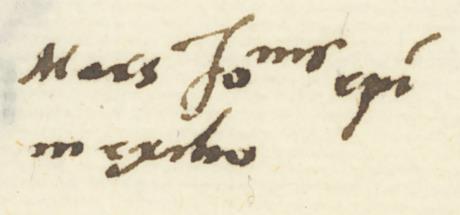 Mors Jo^nis epi
in exilio